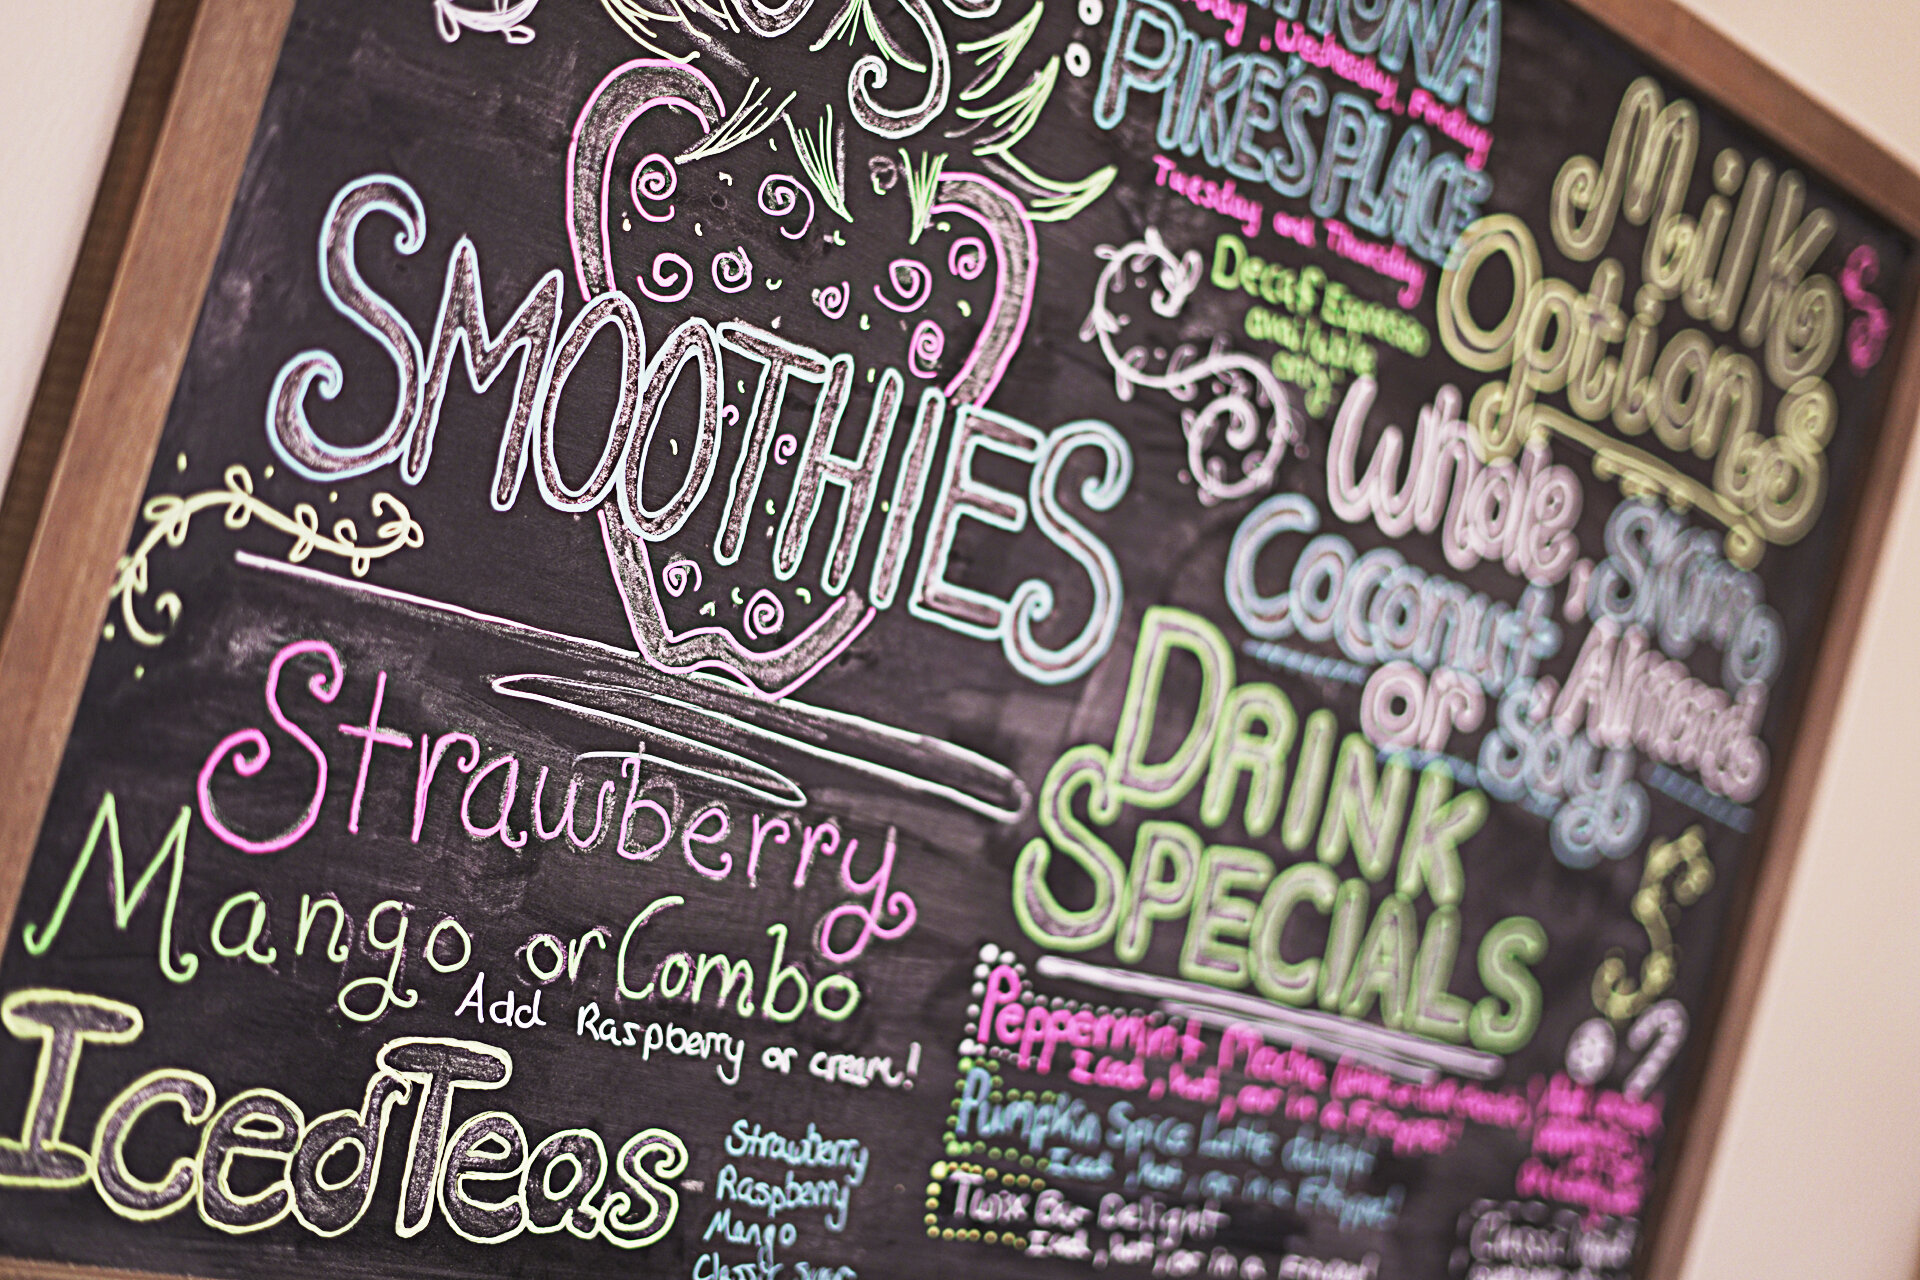 SMOOTHIES
Strawberry
Mango, or Combo
Add Raspberry or cream!
Iced Teas
Strawberry
Raspberry
Mango
Wednesday, Friday
PIKE'S PLACE
Tuesday and Thursday
Decaf Espresso
available
only
Milk
Options
Whole, Skim,
Coconut, Almond
or Soy
DRINK
SPECIALS
Peppermint Mocha
Iced, hot, or in a Frappe!
Pumpkin Spice Latte delight
Iced, hot, or in a Frappe!
Twix Bar Delight
Iced, hot, or in a Frappe!